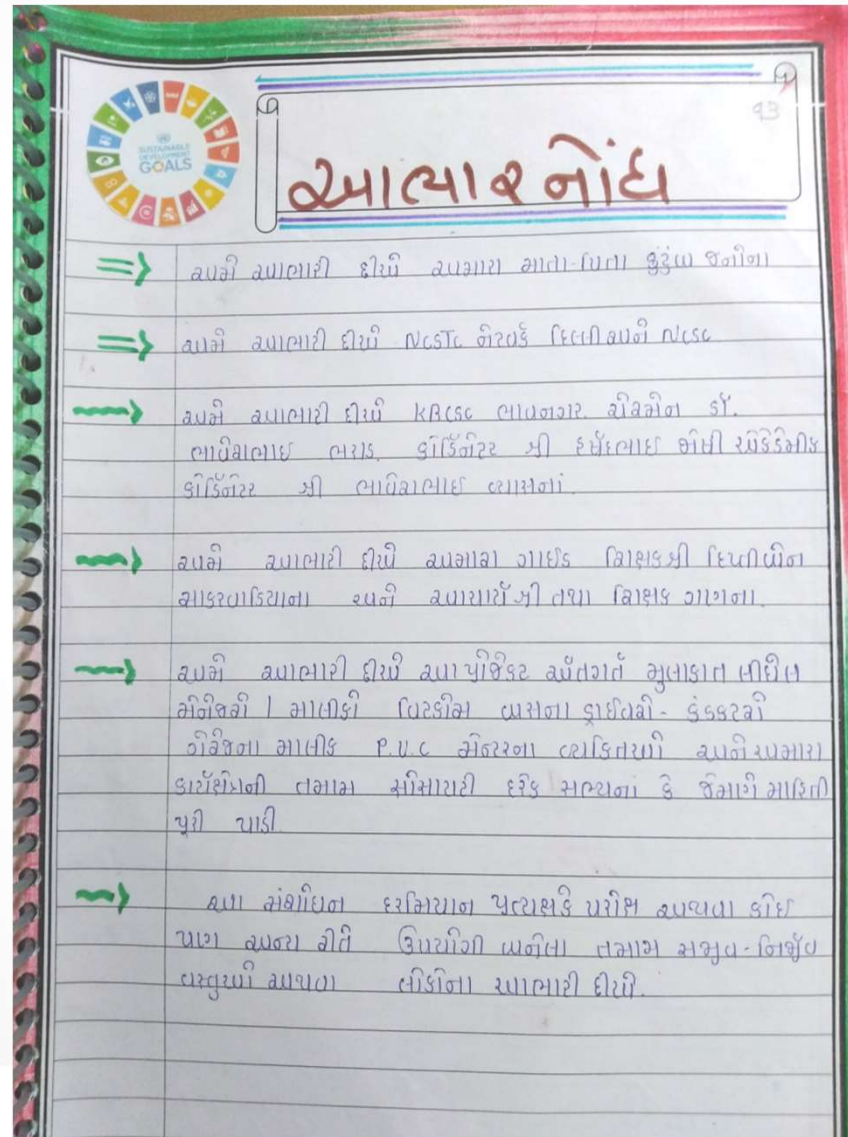 ૧૩
SUSTAINABLE
DEVELOPMENT
GOALS
આભાર નોંધ
અમે આભારી છીએ અમારા માતા-પિતા કુટુંબ જનોના
અમે આભારી છીએ NCSTC નેટવર્ક દિલ્લી અને NCSC
અમે આભારી છીએ KRCSC ભાવનગર ચેરમેન ડૉ.
ભાવેશભાઇ ભરાડ. કોર્ડિનેટર શ્રી હર્ષદભાઇ જોષી એકેડેમીક
કોર્ડિનેટર શ્રી ભાવેશભાઇ વ્યાસનાં.
અમે આભારી છીએ અમારા ગાઇડ શિક્ષકશ્રી દિપ્તીબેન
સાકરવાડિયાના અને આચાર્ય શ્રી તથા શિક્ષક ગણના.
અમે આભારી છીએ આ પ્રોજેકટ અંતગર્ત મુલાકાત લીધેલ
મેનેજરો / માલીકો વિટકોસ બસના ડ્રાઈવરો- કંડકટરો
ગેરેજના માલીક P.U.C સેન્ટરના વ્યકિતઓ અને અમારા
કાર્યક્ષેત્રની તમામ સોસાયટી દરેક સભ્યનાં કે જેમણે માહિતી
પૂરી પાડી
આ સંશોધન દરમિયાન પ્રત્યક્ષકે પરોક્ષ અથવા કોઇ
પણ અન્ય રીતે ઉપયોગી બનેલા તમામ સજીવ-નિર્જીવ
વસ્તુઓ અથવા લોકોના આભારી છીએ.